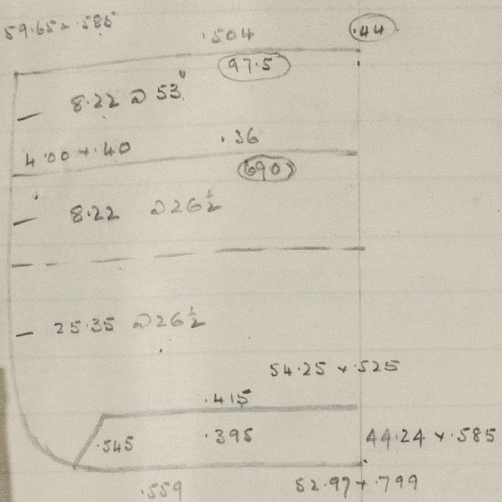 59.65 × .585
.504
.44
97.5
8.22 @ 53"
4.00 × .40
.36
690
8.22 @ 26½
25.35 @ 26½
54.25 × .525
.415
.545
.395
44.24 × .585
.559
52.97 × .799